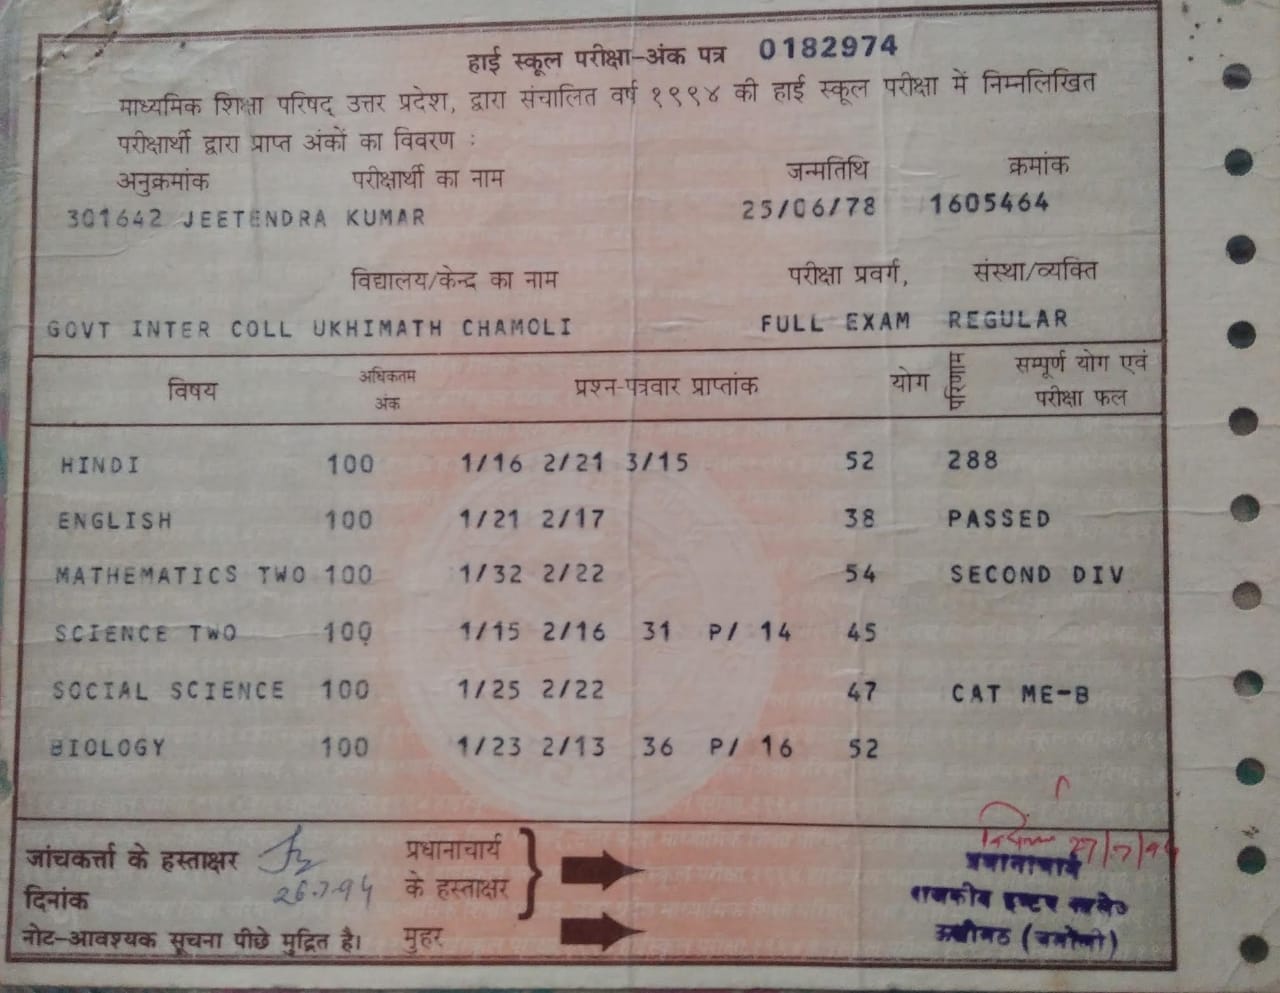 हाई स्कूल परीक्षा-अंक पत्र 0182974
माध्यमिक शिक्षा परिषद् उत्तर प्रदेश, द्वारा संचालित वर्ष १९९४ की हाई स्कूल परीक्षा में निम्नलिखित
परीक्षार्थी द्वारा प्राप्त अंकों का विवरण :
अनुक्रमांक परीक्षार्थी का नाम जन्मतिथि क्रमांक
301642 JEETENDRA KUMAR 25/06/78 1605464
विद्यालय/केन्द्र का नाम परीक्षा प्रवर्ग, संस्था/व्यक्ति
GOVT INTER COLL UKHIMATH CHAMOLI FULL EXAM REGULAR
विषय अधिकतम अंक प्रश्न-पत्रवार प्राप्तांक योग परिणाम सम्पूर्ण योग एवं परीक्षा फल
HINDI 100 1/16 2/21 3/15 52 288
ENGLISH 100 1/21 2/17 38 PASSED
MATHEMATICS TWO 100 1/32 2/22 54 SECOND DIV
SCIENCE TWO 100 1/15 2/16 31 P/ 14 45
SOCIAL SCIENCE 100 1/25 2/22 47 CAT ME-B
BIOLOGY 100 1/23 2/13 36 P/ 16 52
जांचकर्त्ता के हस्ताक्षर प्रधानाचार्य
दिनांक 26.7.94 के हस्ताक्षर
नोट-आवश्यक सूचना पीछे मुद्रित है। मुहर
27/7/94
प्रधानाचार्य
राजकीय इण्टर कालेज
ऊखीमठ (चमोली)